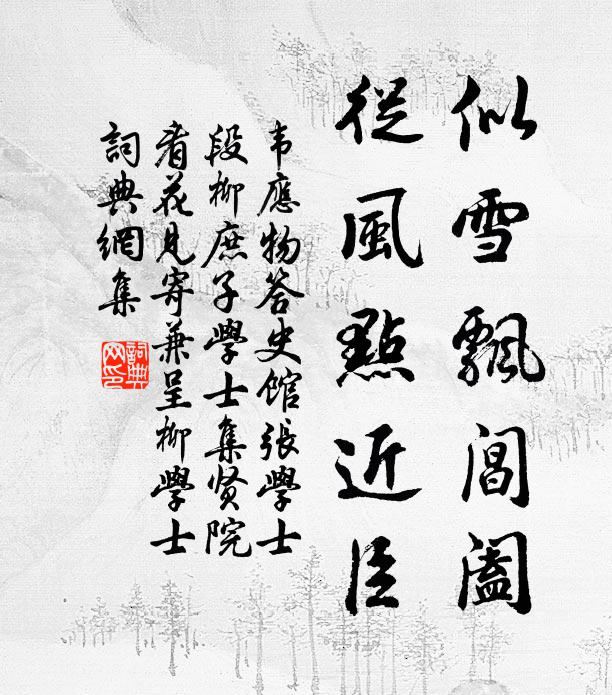 似雪飄閶闔
從風點近臣
韦應物答史館張學士
段柳庶子學士集贤院
看花見寄兼呈柳學士
詞典網集
詞典
网印